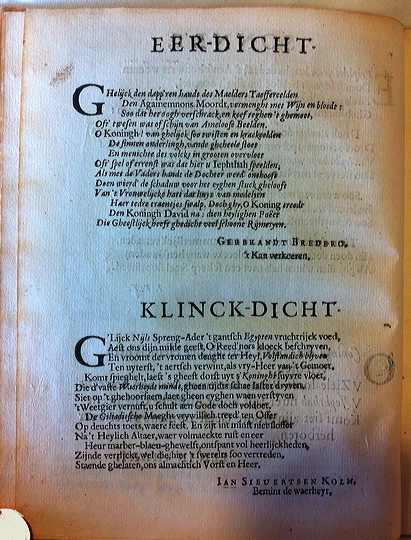 EER-DICHT.
GHelijck den dapp'ren handt des Maelders Taeffereelden
Den Agamemnons Moordt, vermenght met Wijn en bloedt:
Soo dat her oogh verschrack, en keef teghen 't ghemoet,
Oft' twesen was of schijn van Ameloose Beelden.
O Koningh! van ghelijck soo twisten en krackeelden
De sinnen onderlingh, vande gheheele stoet
En menichte des volcks in grooten overvloet
Oft' spel of ernst was dat hier u Iephthah speelden,
Als met de Vaders handt de Dochter werd' onthooft
Doen wierd' de schaduw voor het eyghen stuck ghelooft
Van 't Vrouwelijcke hart dat huys van medelyen
Haer tedre traentjes swalp. Doch ghy, O Koning treedt
Den Koningh David na: dien heylighen Poëet
Die Gheestlijck heeft ghedicht veel schoone Rijmeryen.
GERBRANDT BREDERO.
't Kan verkeeren.
KLINCK-DICHT.
G'Lijck Nijls Spreng-Ader 't gantsch Egypten vruchtrijck voed,
Aest ons dijn milde geest, O Reed'nors kloeck beschryven,
En vroont der vromen deught ter Hey!, Volstandich blijven
Ten uyterst, 't aertsch verwint, als vry-Heer van 't Gemoet.
Komt spieghelt, laest 's gheest dorst uyt 's Koninghs suyvre vloet,
Die d'vaste Waerheyds mondt, gheen tijdts schae laster dryven,
Siet op 't ghehoorsaem, laet gheen eyghen waen verstyven
't Weetgier vernuft, u schult aen Gode doch voldoet,
De Giliadische Maeght vrywillich treed' ten Offer
Op deuchts toets, waere feest. En zijt in minst niet sloffer
Na 't Heylich Altaer, waer volmaeckte rust en eer
Heur marber-blaeu-ghewelft, ontspant vol heerlijckheden,
Zijnde verrijckt, wel die, hier 't swerelts soo vertreden,
Staende ghelaten, ons almachtich Vorst en Heer.
IAN SIEUERTSEN KOLM.
Bemint de waerheyt.